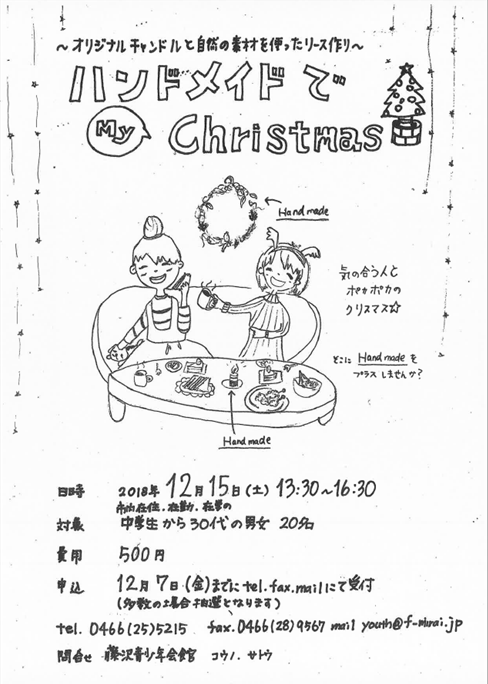 〜オリジナルキャンドルと自然の素材を使ったリース作り〜
ハンドメイドで
My Christmas
Hand made
気の合う人と
ポカポカの
クリスマス☆
そこに Hand made を
プラスしませんか?
Hand made
日時 2018年12月15日(土)13:30〜16:30
市内在住、在勤、在学の
対象 中学生から30代の男女 20名
費用 500円
申込 12月7日(金)までにtel.fax.mailにて受付
(多数の場合抽選となります)
tel. 0466(25)5215 fax.0466(28)9567 mail youth@f-mirai.jp
問合せ 藤沢青少年会館 コウノ、サトウ